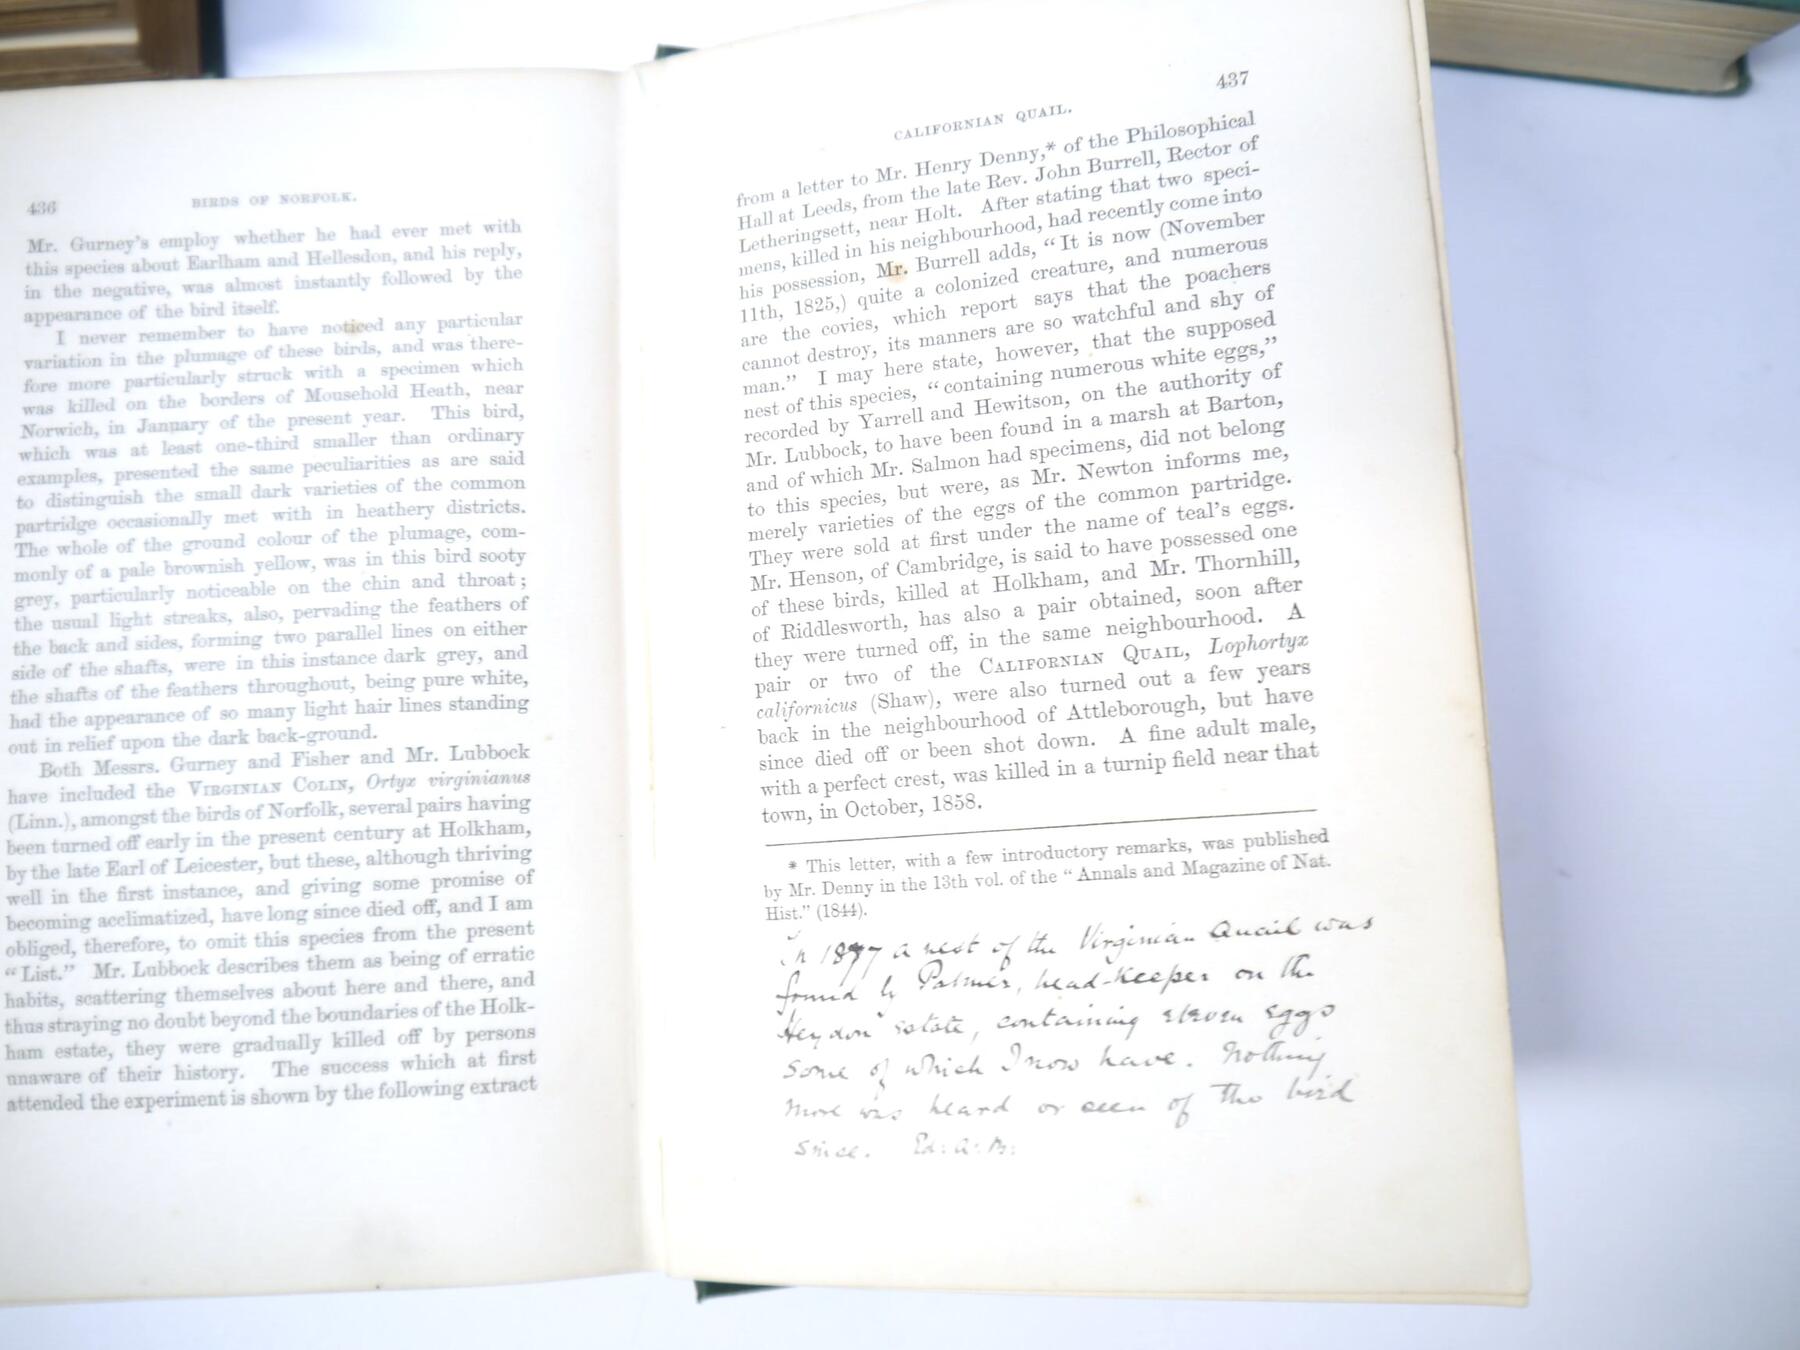 436
BIRDS OF NORFOLK.
Mr. Gurney's employ whether he had ever met with
this species about Earlham and Hellesdon, and his reply,
in the negative, was almost instantly followed by the
appearance of the bird itself.
I never remember to have noticed any particular
variation in the plumage of these birds, and was there-
fore more particularly struck with a specimen which
was killed on the borders of Mousehold Heath, near
Norwich, in January of the present year. This bird,
which was at least one-third smaller than ordinary
examples, presented the same peculiarities as are said
to distinguish the small dark varieties of the common
partridge occasionally met with in heathery districts.
The whole of the ground colour of the plumage, com-
monly of a pale brownish yellow, was in this bird sooty
grey, particularly noticeable on the chin and throat;
the usual light streaks, also, pervading the feathers of
the back and sides, forming two parallel lines on either
side of the shafts, were in this instance dark grey, and
the shafts of the feathers throughout, being pure white,
had the appearance of so many light hair lines standing
out in relief upon the dark back-ground.
Both Messrs. Gurney and Fisher and Mr. Lubbock
have included the VIRGINIAN COLIN, Ortyx virginianus
(Linn.), amongst the birds of Norfolk, several pairs having
been turned off early in the present century at Holkham,
by the late Earl of Leicester, but these, although thriving
well in the first instance, and giving some promise of
becoming acclimatized, have long since died off, and I am
obliged, therefore, to omit this species from the present
"List." Mr. Lubbock describes them as being of erratic
habits, scattering themselves about here and there, and
thus straying no doubt beyond the boundaries of the Holk-
ham estate, they were gradually killed off by persons
unaware of their history. The success which at first
attended the experiment is shown by the following extract
CALIFORNIAN QUAIL.
437
from a letter to Mr. Henry Denny,* of the Philosophical
Hall at Leeds, from the late Rev. John Burrell, Rector of
Letheringsett, near Holt. After stating that two speci-
mens, killed in his neighbourhood, had recently come into
his possession, Mr. Burrell adds, "It is now (November
11th, 1825,) quite a colonized creature, and numerous
are the covies, which report says that the poachers
cannot destroy, its manners are so watchful and shy of
man." I may here state, however, that the supposed
nest of this species, "containing numerous white eggs,"
recorded by Yarrell and Hewitson, on the authority of
Mr. Lubbock, to have been found in a marsh at Barton,
and of which Mr. Salmon had specimens, did not belong
to this species, but were, as Mr. Newton informs me,
merely varieties of the eggs of the common partridge.
They were sold at first under the name of teal's eggs.
Mr. Henson, of Cambridge, is said to have possessed one
of these birds, killed at Holkham, and Mr. Thornhill,
of Riddlesworth, has also a pair obtained, soon after
they were turned off, in the same neighbourhood. A
pair or two of the CALIFORNIAN QUAIL, Lophortyx
californicus (Shaw), were also turned out a few years
back in the neighbourhood of Attleborough, but have
since died off or been shot down. A fine adult male,
with a perfect crest, was killed in a turnip field near that
town, in October, 1858.
* This letter, with a few introductory remarks, was published
by Mr. Denny in the 13th vol. of the "Annals and Magazine of Nat.
Hist." (1844).
In 1877 a nest of the Virginian Quail was
found by Palmer, head-keeper on the
Heydon estate, containing eleven eggs
some of which I now have. Nothing
more was heard or seen of the bird
since. Ed: A: B: